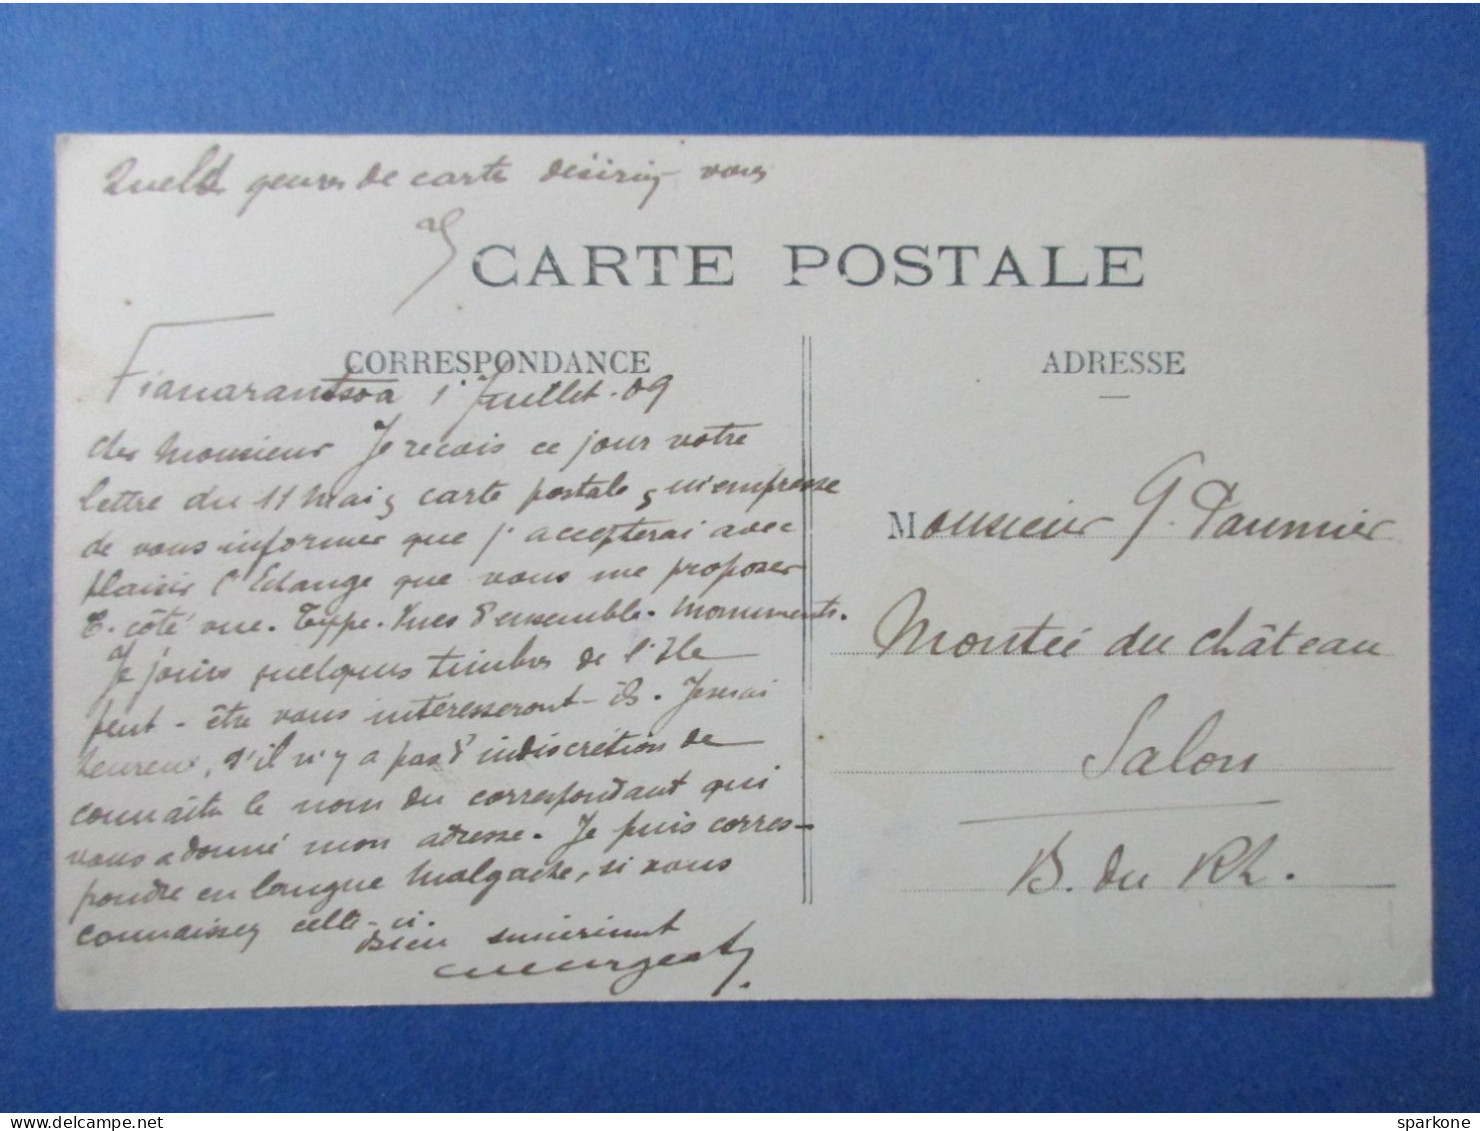 genres de carte désirez vous
CARTE POSTALE
CORRESPONDANCE
Fianarantsoa 1 Juillet. 09
cher Monsieur Je recois ce jour votre
lettre du 11 Mai, carte postale, m'empresse
de vous informer que j'accepterai avec
plaisir l'Echange que vous me proposez
T. côté vue. Type. Vues d'ensemble. Monuments.
Je joins quelques timbres de l'Ile
peut-être vous intéresseront-ils. Je serai
heureux, s'il n'y a pas d'indiscrétion de
connaître le nom du correspondant qui
vous a donné mon adresse. Je puis corres-
pondre en langue Malgache, si vous
connaissez celle-ci.
Bien sincèrement
ADRESSE
Monsieur G. Paumier
Montée du château
Salon
B. du Rh.
sparkone